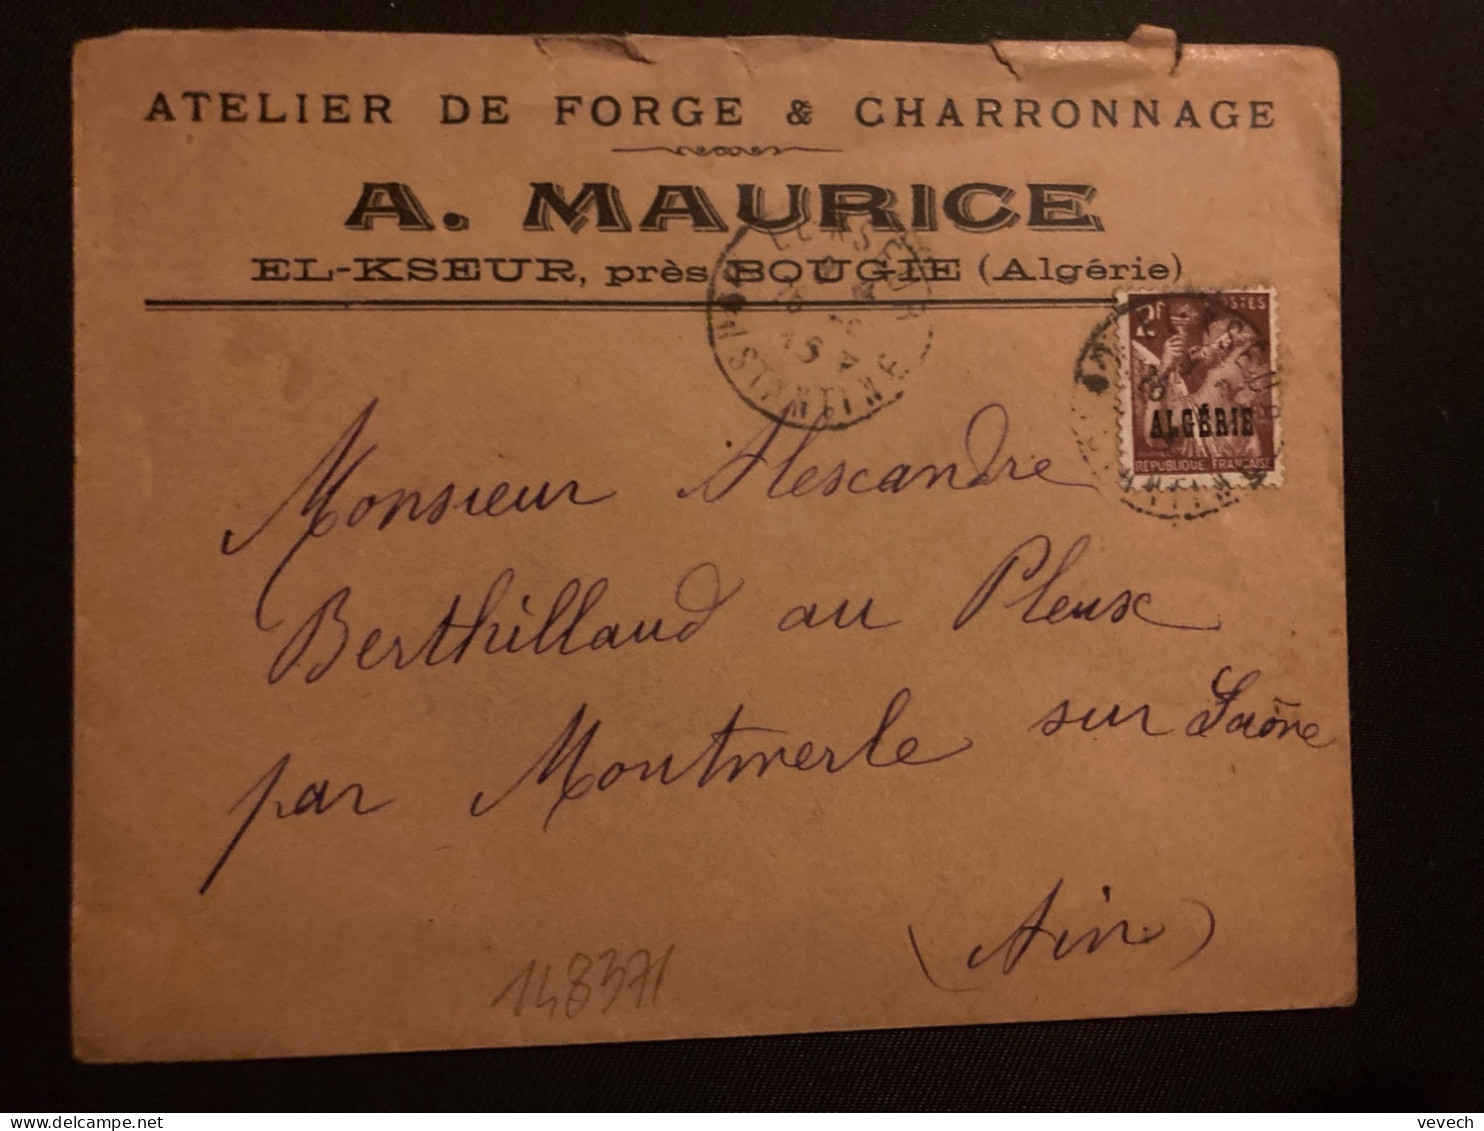 ATELIER DE FORGE & CHARRONNAGE
A. MAURICE
EL-KSEUR, près BOUGIE (Algérie)
EL KSEUR
CONSTANTINE
2F POSTES
ALGÉRIE
RÉPUBLIQUE FRANÇAISE
Monsieur Alexandre
Berthillaud au Pleux
par Montmerle sur Saône
(Ain)
148371
vevech